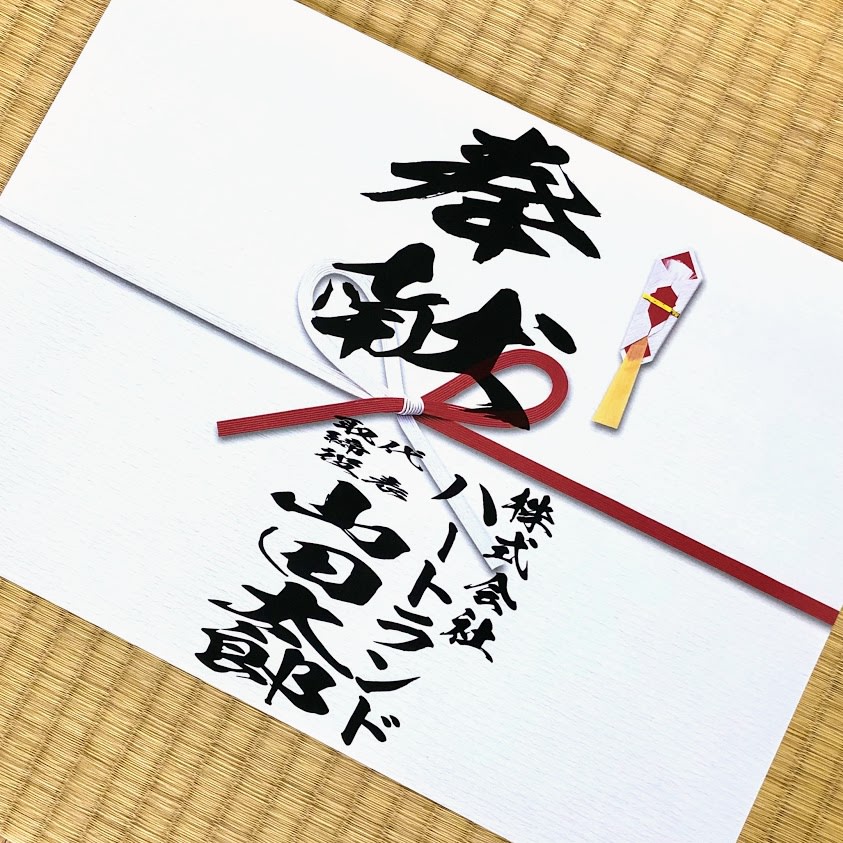 奉献
株式会社
ハートランド
代表
取締役
山田太郎